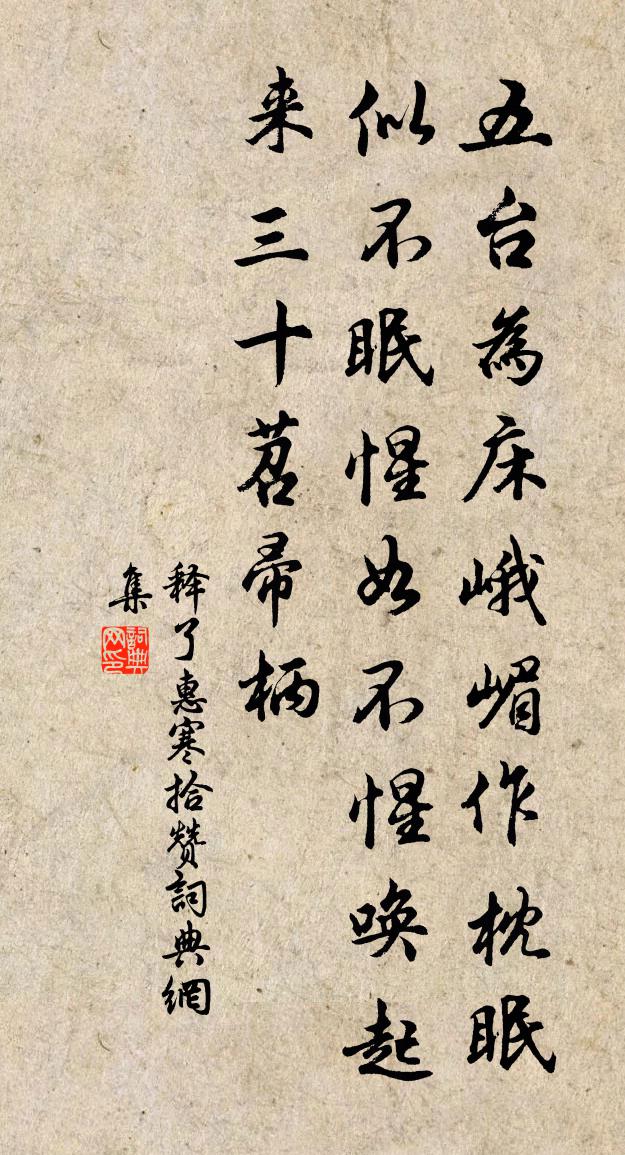 五台為床峨嵋作枕眠
似不眠惺如不惺唤起
来三十苕帚柄
释了惠寒拾赞詞典網
集
詞典
网印